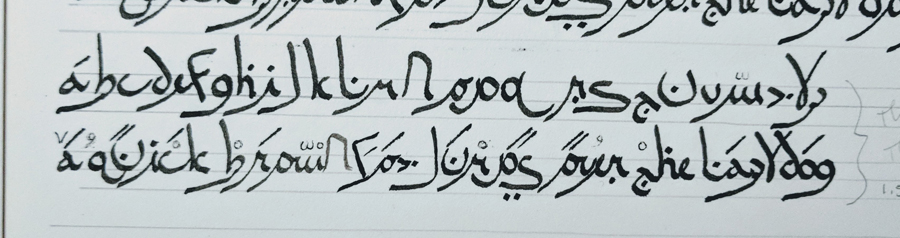 over the lazy
abcdefghijklmnopqrstuvwxyz
a quick brown fox jumps over the lazy dog